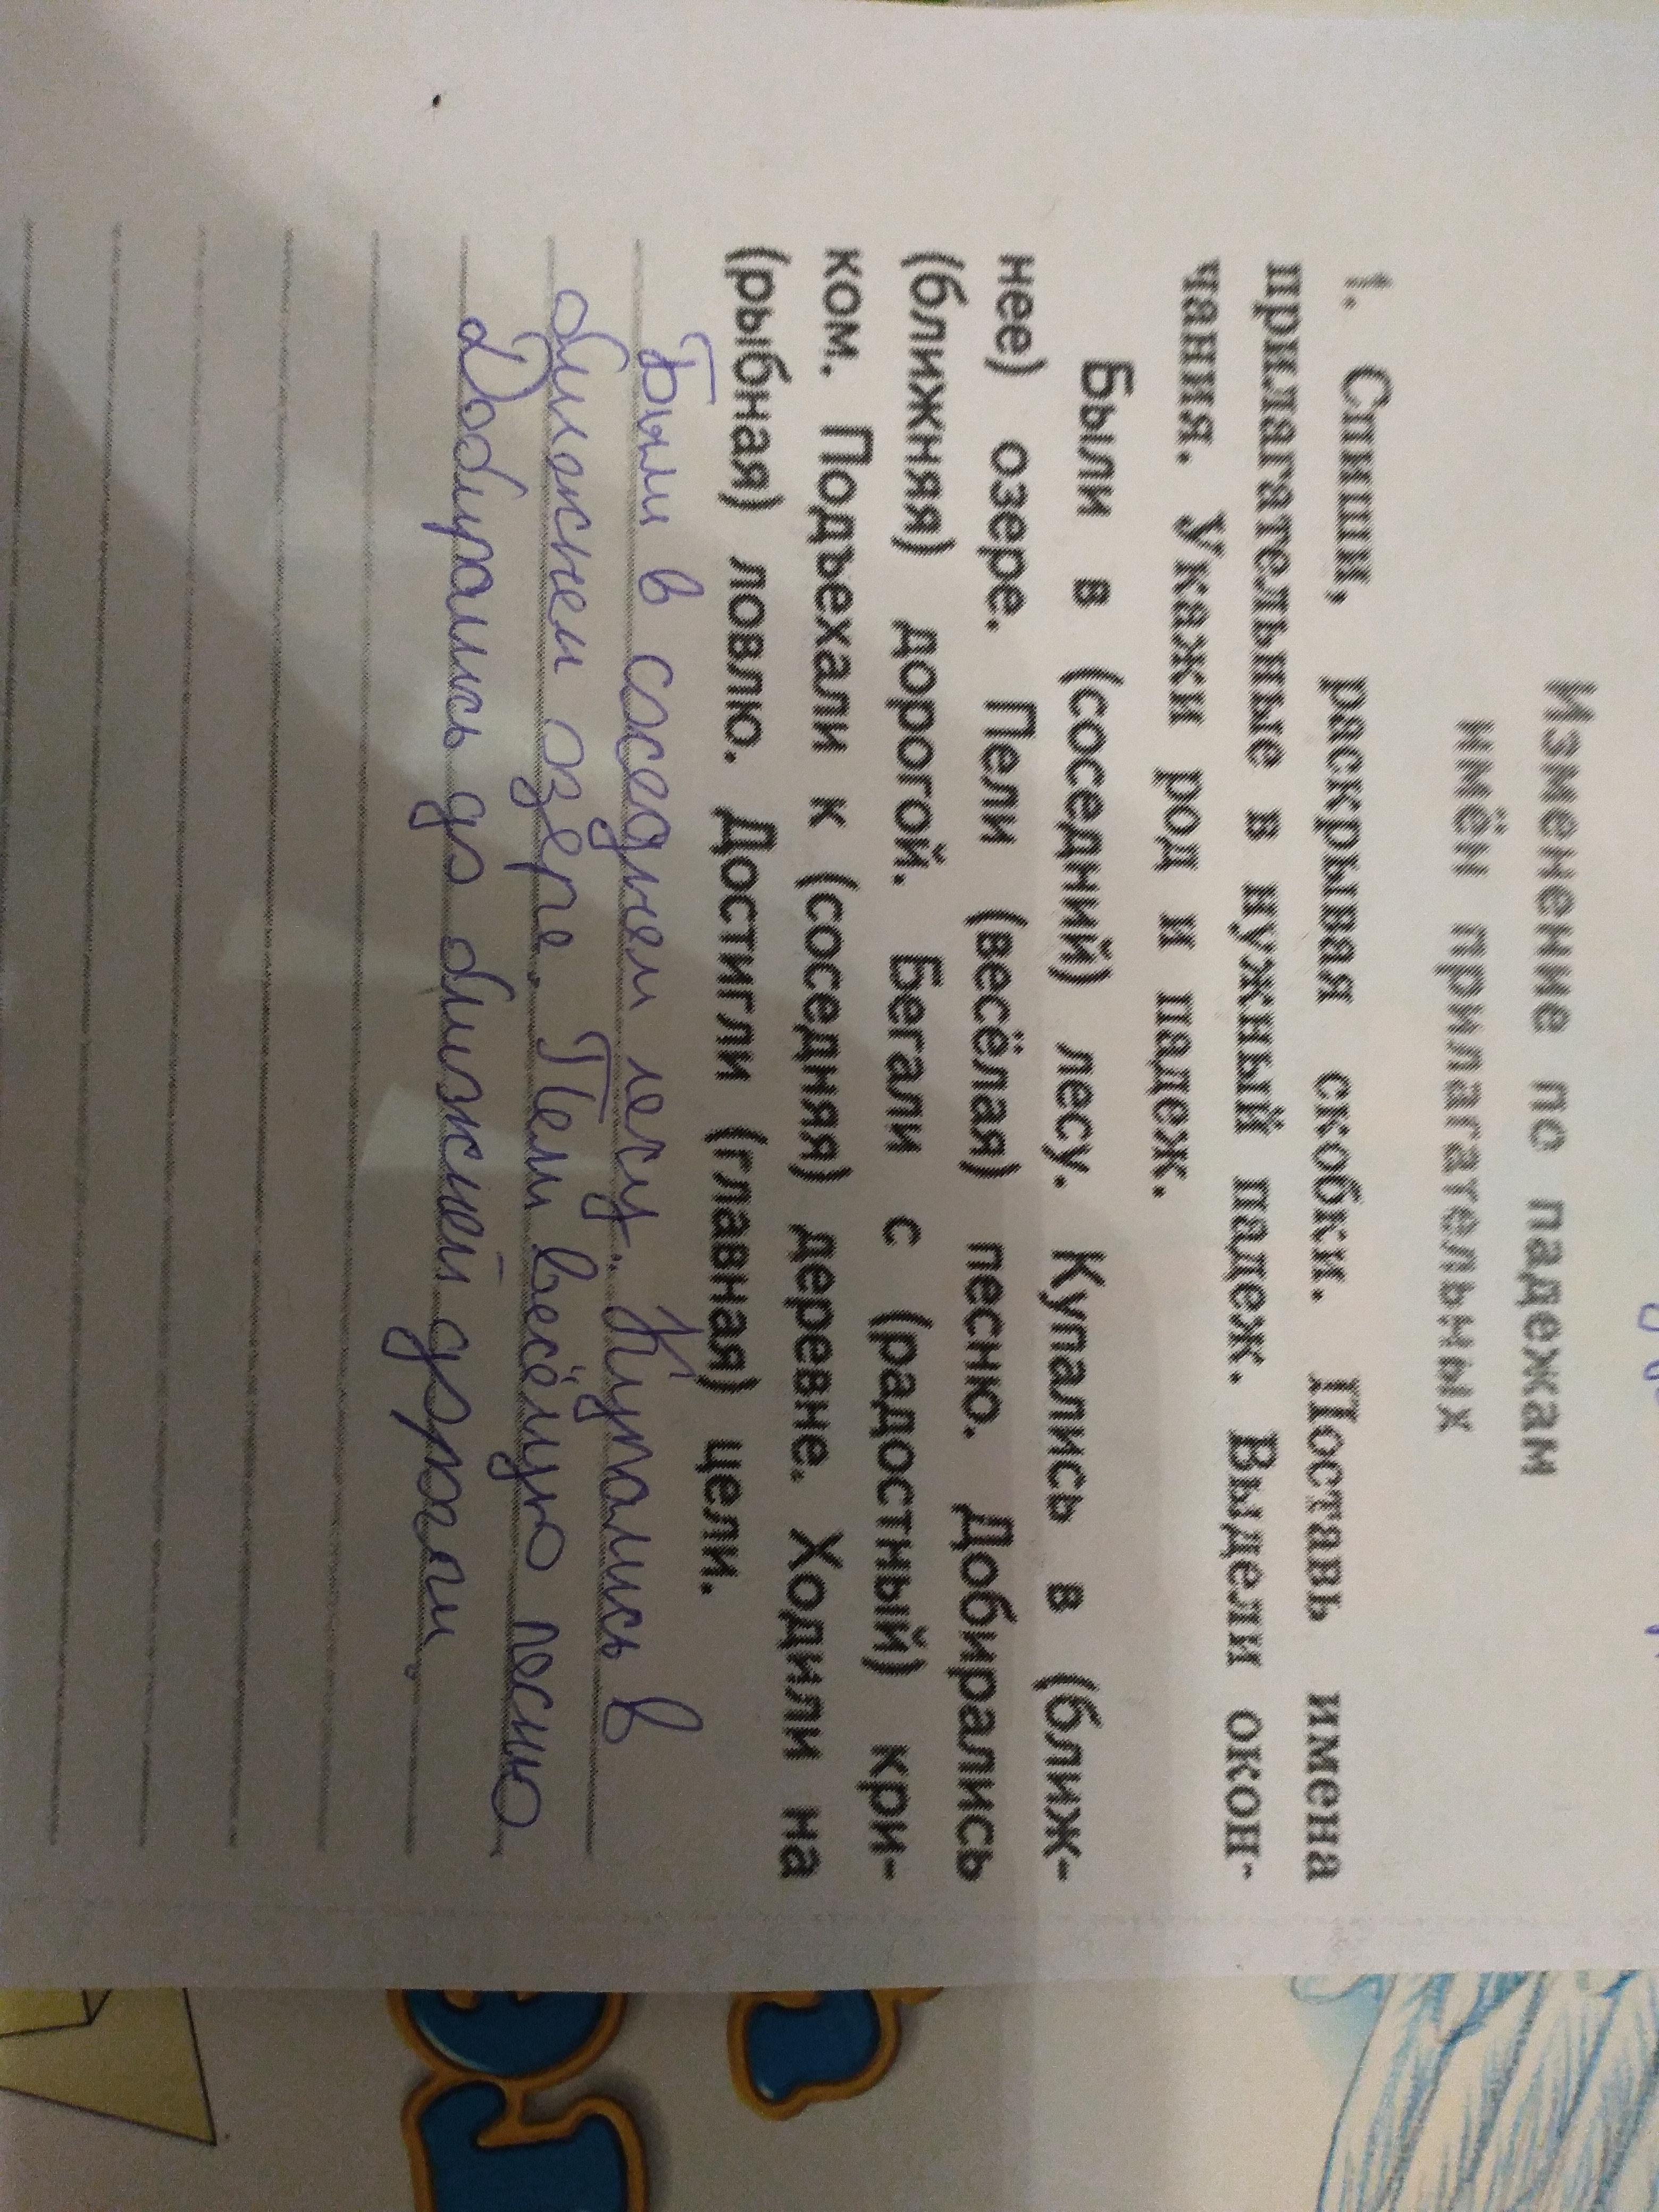 Изменение по падежам
имён прилагательных
1. Спиши, раскрывая скобки. Поставь имена
прилагательные в нужный падеж. Выдели окон-
чания. Укажи род и падеж.
Были в (соседний) лесу. Купались в (ближ-
нее) озере. Пели (весёлая) песню. Добирались
(ближняя) дорогой. Бегали с (радостный) кри-
ком. Подъехали к (соседняя) деревне. Ходили на
(рыбная) ловлю. Достигли (главная) цели.
Были в соседнем лесу. Купались в
ближнем озере. Пели весёлую песню
Добирались до ближней дороги.